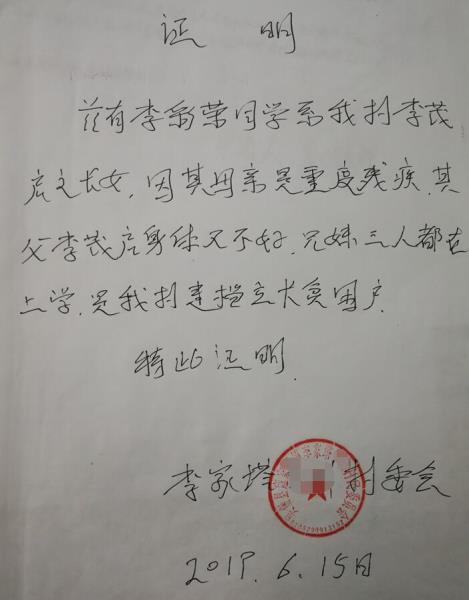 证 明
兹有李彩荣同学系我村李茂
启之长女,因其母亲是重度残疾,其
父李茂启身体又不好,兄妹三人都在
上学,是我村建档立卡贫困户.
特此证明.
李家塔 村委会
2019.6.15日